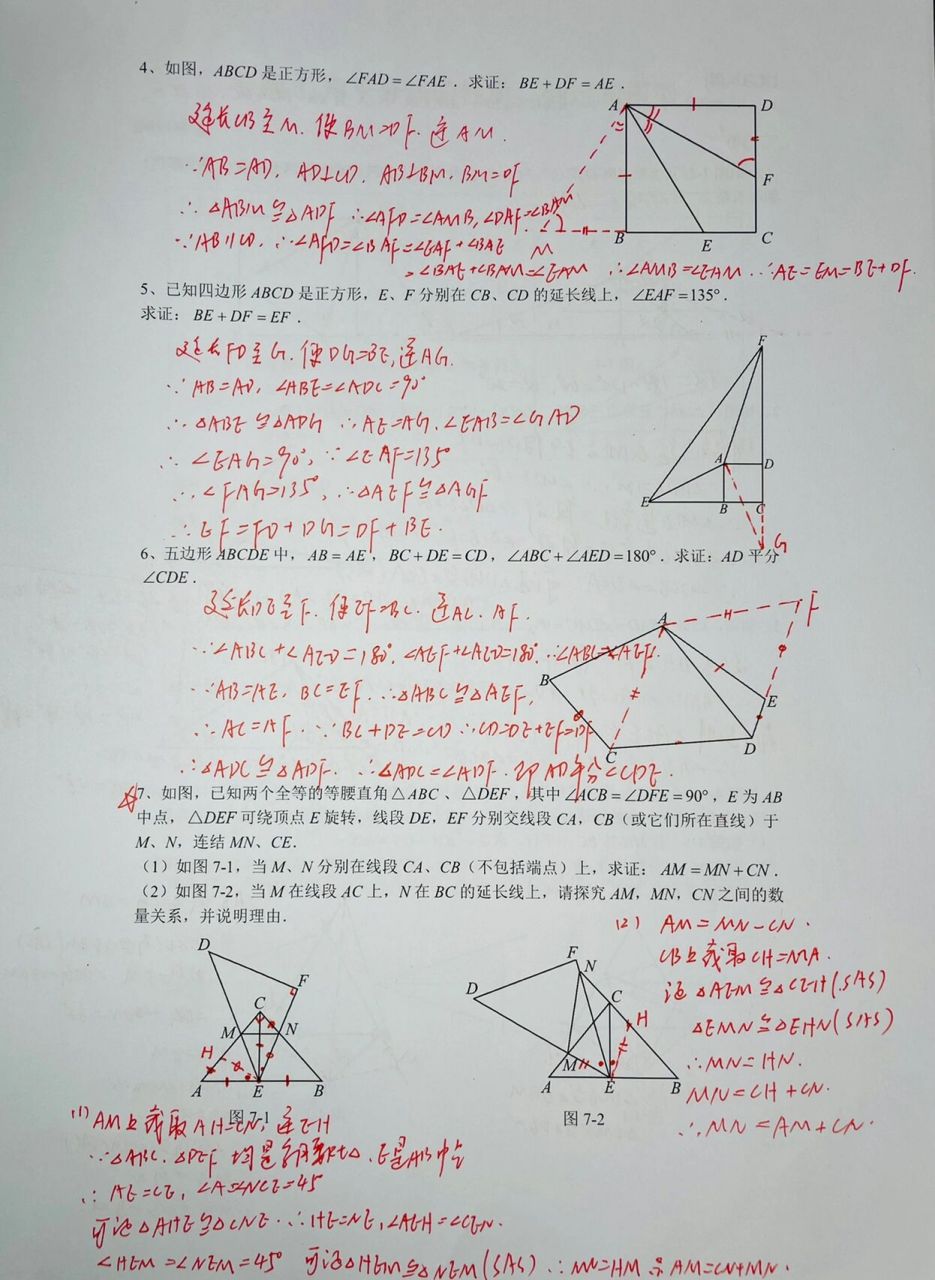 4、如图，ABCD 是正方形，∠FAD = ∠FAE．求证：BE + DF = AE．
延长CB至M. 使BM=DF. 连AM.
∵AB=AD, AD⊥CD. AB⊥BM. BM=DF
∴ △ABM≌△ADF ∴∠AFD=∠AMB, ∠DAF=∠BAM
∵AB∥CD, ∴∠AFD=∠BAF=∠EAF+∠BAE
=∠BAE+∠BAM=∠EAM ∴∠AMB=∠EAM ∴AE=EM=BE+DF.
A D F B E C M
5、已知四边形 ABCD 是正方形，E、F 分别在 CB、CD 的延长线上，∠EAF = 135°．
求证：BE + DF = EF．
延长FD至G. 使DG=BE, 连AG.
∵ AB=AD, ∠ABE=∠ADC=90°
∴ △ABE≌△ADG ∴AE=AG, ∠EAB=∠GAD
∴ ∠EAG=90°, ∵∠EAF=135°
∴∠FAG=135°, ∴△AEF≌△AGF
∴EF=FD+DG=DF+BE.
F A D E B C G
6、五边形 ABCDE 中，AB = AE，BC + DE = CD，∠ABC + ∠AED = 180°．求证：AD 平分
∠CDE．
延长DE至F. 使EF=BC. 连AC. AF.
∵∠ABC+∠AED=180°. ∠AEF+∠AED=180°. ∴∠ABC=∠AEF.
∵AB=AE, BC=EF. ∴△ABC≌△AEF,
∴AC=AF. ∵BC+DE=CD ∴CD=DE+EF=DF
∴△ADC≌△ADF. ∴∠ADC=∠ADF. 即AD平分∠CDE.
A F B E C D
☆7、如图，已知两个全等的等腰直角△ABC 、△DEF，其中∠ACB = ∠DFE = 90°，E 为 AB
中点，△DEF 可绕顶点 E 旋转，线段 DE，EF 分别交线段 CA，CB（或它们所在直线）于
M、N，连结 MN、CE.
（1）如图 7-1，当 M、N 分别在线段 CA、CB（不包括端点）上，求证：AM = MN + CN．
（2）如图 7-2，当 M 在线段 AC 上，N 在 BC 的延长线上，请探究 AM，MN，CN 之间的数
量关系，并说明理由.
(2) AM=MN-CN.
CB上截取CH=MA.
证△AEM≌△CEH(SAS)
△EMN≌△EHN(SAS)
∴MN=HN.
MN=CH+CN.
∴MN=AM+CN.
D F C M N H A E B
图 7-1
F N D C H M A E B
图 7-2
(1) AM上截取AH=CN, 连EH
∵△ABC. △DEF 均是等腰Rt△. E是AB中点
∴ AE=CE, ∠A=∠NCE=45°
可证△AHE≌△CNE ∴HE=NE, ∠AEH=∠CEN.
∠HEM=∠NEM=45° 可证△HEM≌△NEM(SAS) ∴MN=HM ∴AM=CN+MN.